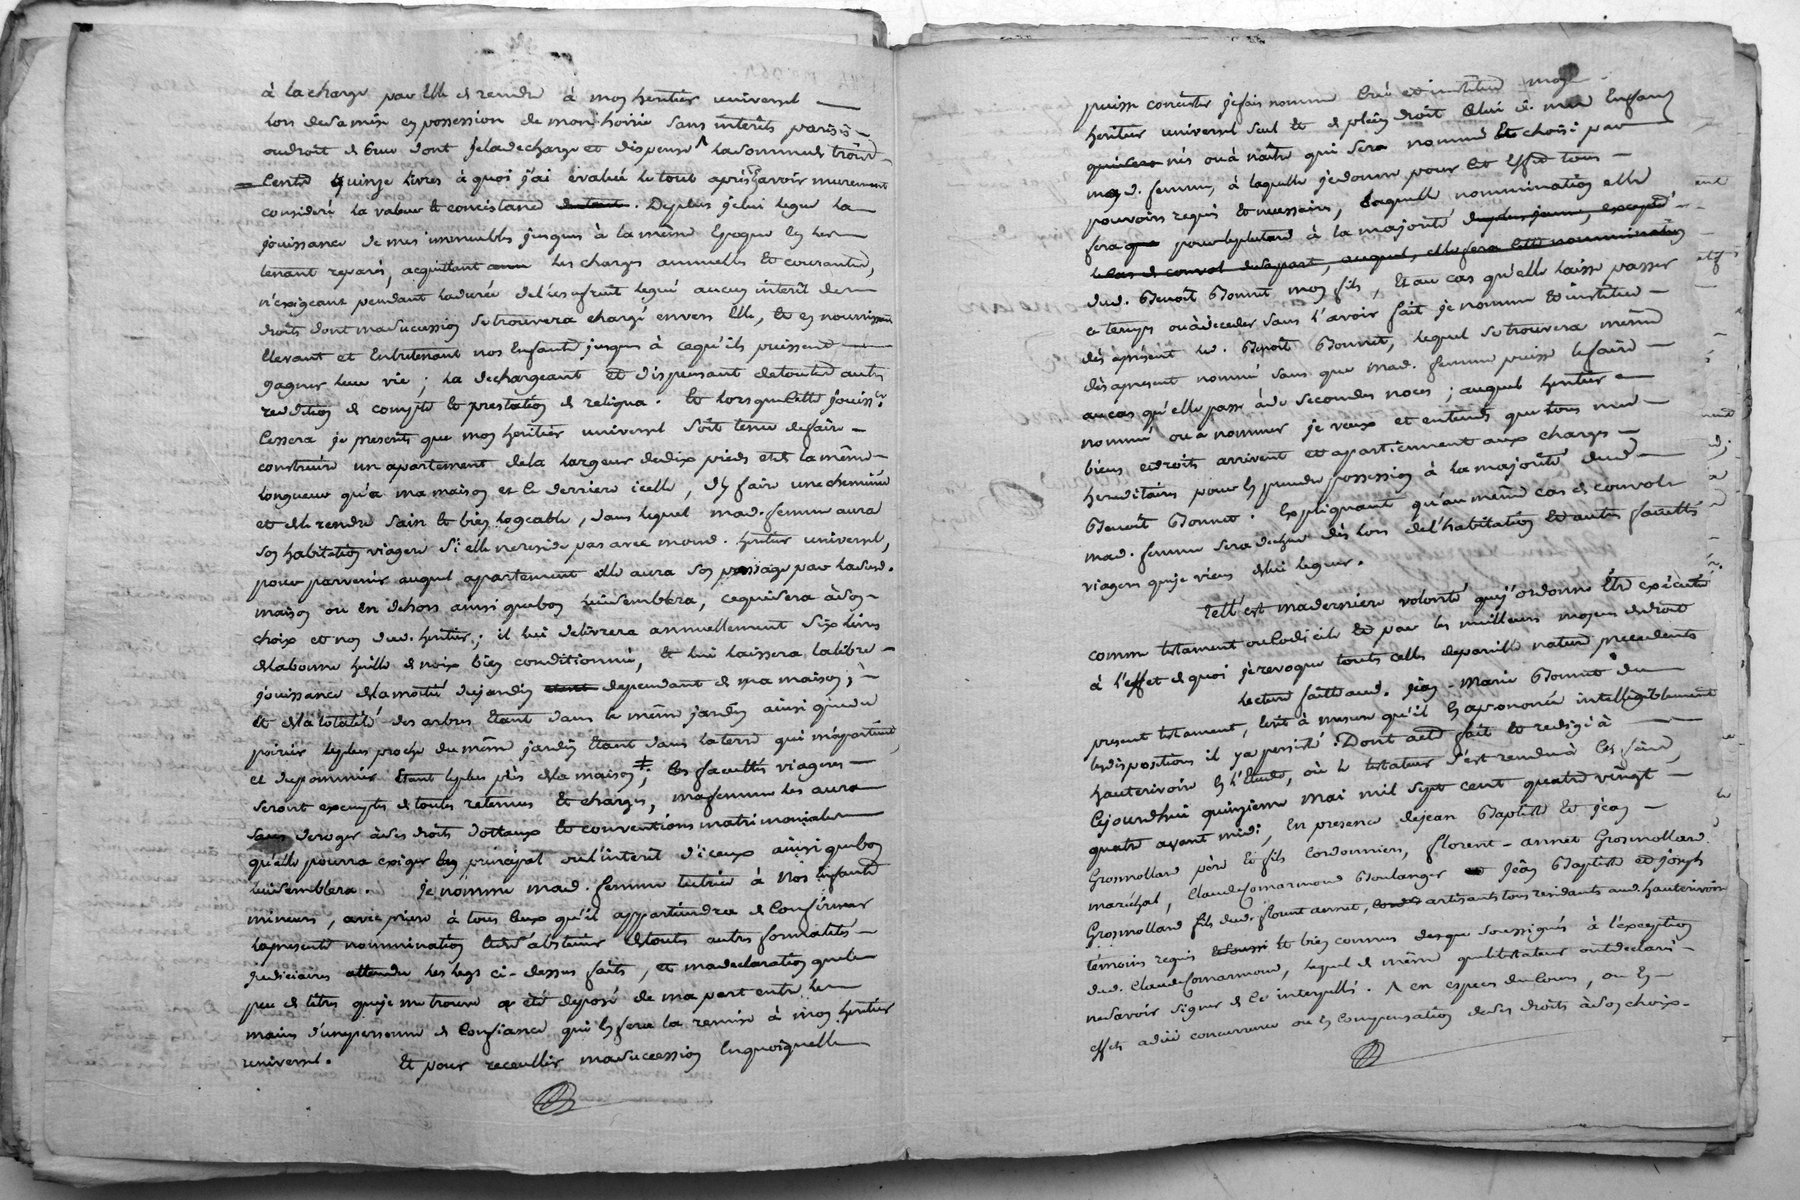 à la charge par elle de rendre à mon heritier universel
lors de sa mise en possession de mon hoirie sans intérêts parisis
ou droit de crue dont je la decharge et dispense ^ la somme de trois
cents quinze livres à quoi j'ai évalué le tout après avoir murement
consideré la valeur et concistance . De plus je lui legue la
jouissance de mes immeubles jusques à la même epoque en les
tenant reparés, acquittant les charges annuelles et courantes,
n'exigeant pendant la durée de l'usufruit legué aucun interêt des
droits dont ma succession se trouvera chargé envers elle, et en nourrissant
elevant et entretenant nos enfants jusques à ce qu'ils puissent
gagner leur vie ; la dechargeant et dispensant de toutes autres
reddition de compte et prestation de reliqua. Et lorsque cette jouiss.ce
cessera je prescris que mon heritier universel soit tenu de faire
construire un apartement de la largeur de dix pieds et de la même
longueur qu'a ma maison et le derriere icelle, d'y faire une cheminée
et de le rendre sain et bien logeable, dans lequel mad. femme aura
son habitation viagere si elle ne reside pas avec mond. heritier universel,
pour parvenir auquel apartement elle aura son passage par lad.
maison ou en dehors ainsi que bon lui semblera, ce qui sera à son
choix et non dud. heritier ; il lui delivrera annuellement six livres
de la bonne huille de noix bien conditionnée, et lui laissera la libre
jouissance de la moitié du jardin dependant de ma maison ;
et de la totalité des arbres étant dans le même jardin ainsi que du
poirier le plus proche du même jardin étant dans la terre qui m'apartient,
et du pommier étant le plus près de la maison ; les facultés viageres
seront exemptes de toutes retenues et charges, ma femme les aura
sans deroger à ses droits dottaux et conventions matrimoniales
qu'elle pourra exiger en principal ou l'interêt d'iceux ainsi que bon
lui semblera. Je nomme mad. femme tutrice à nos enfants
mineurs, avec priere à tous ceux qu'il appartiendra de confirmer
la presente nommination et de s'abstenir de toutes autres formalités
judiciaires attendu les legs ci-dessus faits, et ma declaration que le
peu de titres que je me trouve a été deposé de ma part entre les
mains d'une personne de confiance qui en fera la remise à mon heritier
universel. Et pour recueillir ma succession en quoi qu'elle
puisse concister je fais nomme créé et institue mon
heritier universel seul et de plein droit celui de mes enfans
nés ou à naître qui sera nommé et choisi par
mad. femme, à laquelle je donne pour cet effet tous
pouvoirs requis et necessaires, laquelle nommination elle
fera pour le plutard à la majorité du plus jeune, excepté
le cas de convol de sa part, auquel elle fera cette nommination
dud. Benoît Bonnet mon fils, et au cas qu'elle laisse passer
ce temps ou à deceder sans l'avoir fait je nomme et institue
dès àprésent led. Benoît Bonnet, lequel se trouvera même
dès apresent nommé sans que mad. femme puisse le faire
au cas qu'elle passe à de secondes noces ; auquel heritier
nommé ou à nommer je veux et entends que tous mes
biens et droits arrivent et apartiennent aux charges
hereditaires pour en prendre possession à la majorité dud.
Benoît Bonnet. Expliquant qu'au même cas de convol
mad. femme sera dechue dès lors de l'habitation et autres facultés
viageres que je viens de lui leguer.
Telle est ma derniere volonté que j'ordonne être exécutée
comme testament ou codicile et par les meilleurs moyens de droit
à l'effet de quoi je revoque touts celles de pareille nature precedents
Lecture faitte aud. Jean-Marie Bonnet du
present testament, écrit à mesure qu'il en a prononcé intelligiblement
les dispositions il y a persisté. Dont acte fait et redigé à
hauterivoire en l'étude, où le testateur s'est rendu à ces fins,
cejourdhui quinzieme mai mil sept cent quatre vingt
quatre avant midi, en presence de jean Baptiste et jean
Grosmollard père et fils cordonniers, florent-annet Grosmollard
maréchal, Claude Comarmond Boulanger et Jean Baptiste et joseph
Grosmollard fils dud. florent annet, artisants tous residants aud. hauterivoire
témoins requis et bien connus desque soussignés à l'exception
dud. Claude Comarmond, lequel de même que le testateur ont declaré
ne savoir signer de ce interpellés. ^ en especes du cours, ou en
effets a due concurrence ou en compensation de ses droits à son choix.